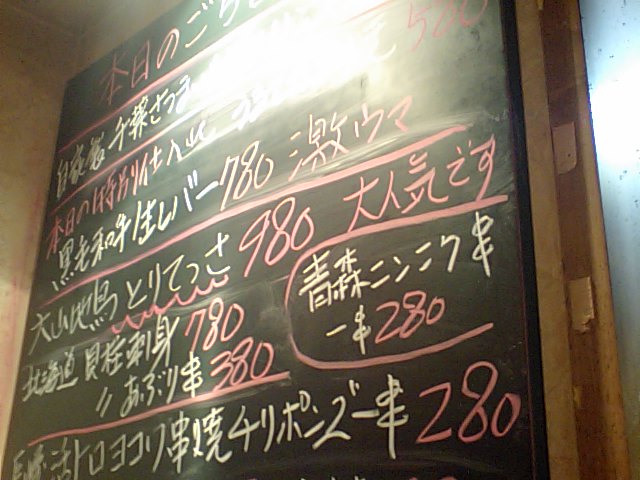 本日のご
自家製 千葉さつま 580
本日の特別仕入れ
黒毛和牛生レバー780 激ウマ
大山地鳥 とりてっさ 980 大人気です
北海道 貝柱刺身 780
〃 あぶり串 380
青森ニンニク串
一串280
活トロヨコワ串焼チリポンズ一串 280